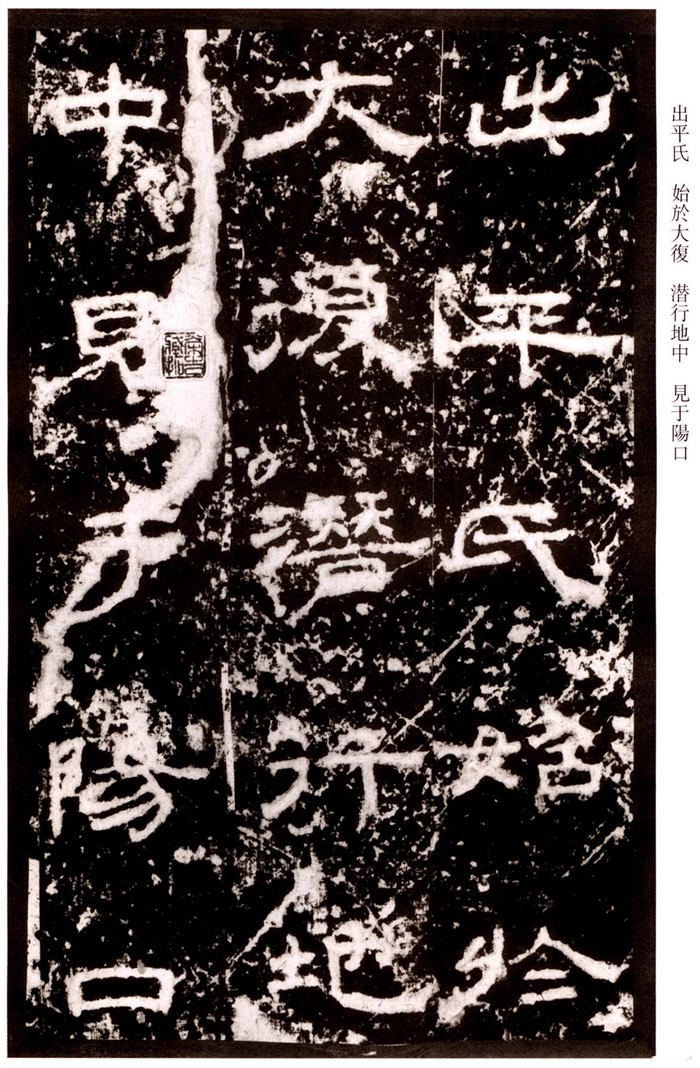 出平氏　始於大復　潜行地中　見于陽口
出平氏始於
大復潛行地
中見于陽口